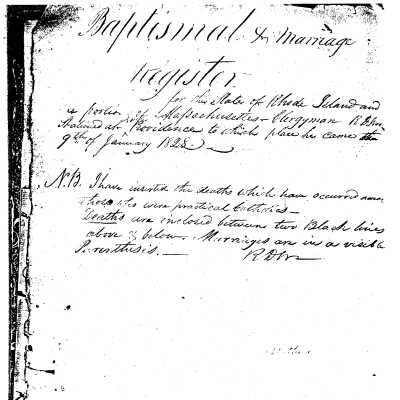 Baptismal & Marriage
Register
for the State of Rhode Island and
a portion of Massachusetts - Clergyman R D Wn
Stationed at Providence to which place he came the
9th of January 1828
N.B. I have inserted the deaths which have occurred among
those who were practical Catholics -
Deaths are inclosed between two Black lines
above & below. Marriages are in a visible
Parenthesis. -